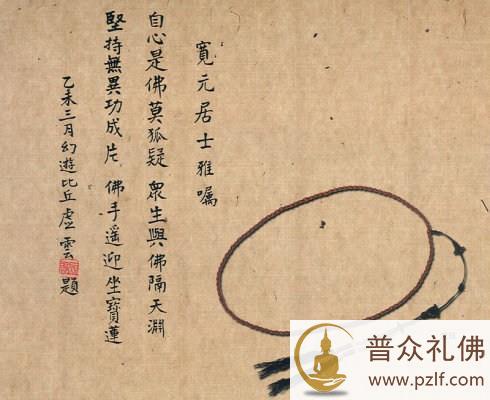 寬元居士雅囑
自心是佛莫狐疑 眾生與佛隔天淵
堅持無異功成片 佛手遙迎坐寶蓮
乙未三月幻遊比丘虛雲題
普众礼佛
www.pzlf.com